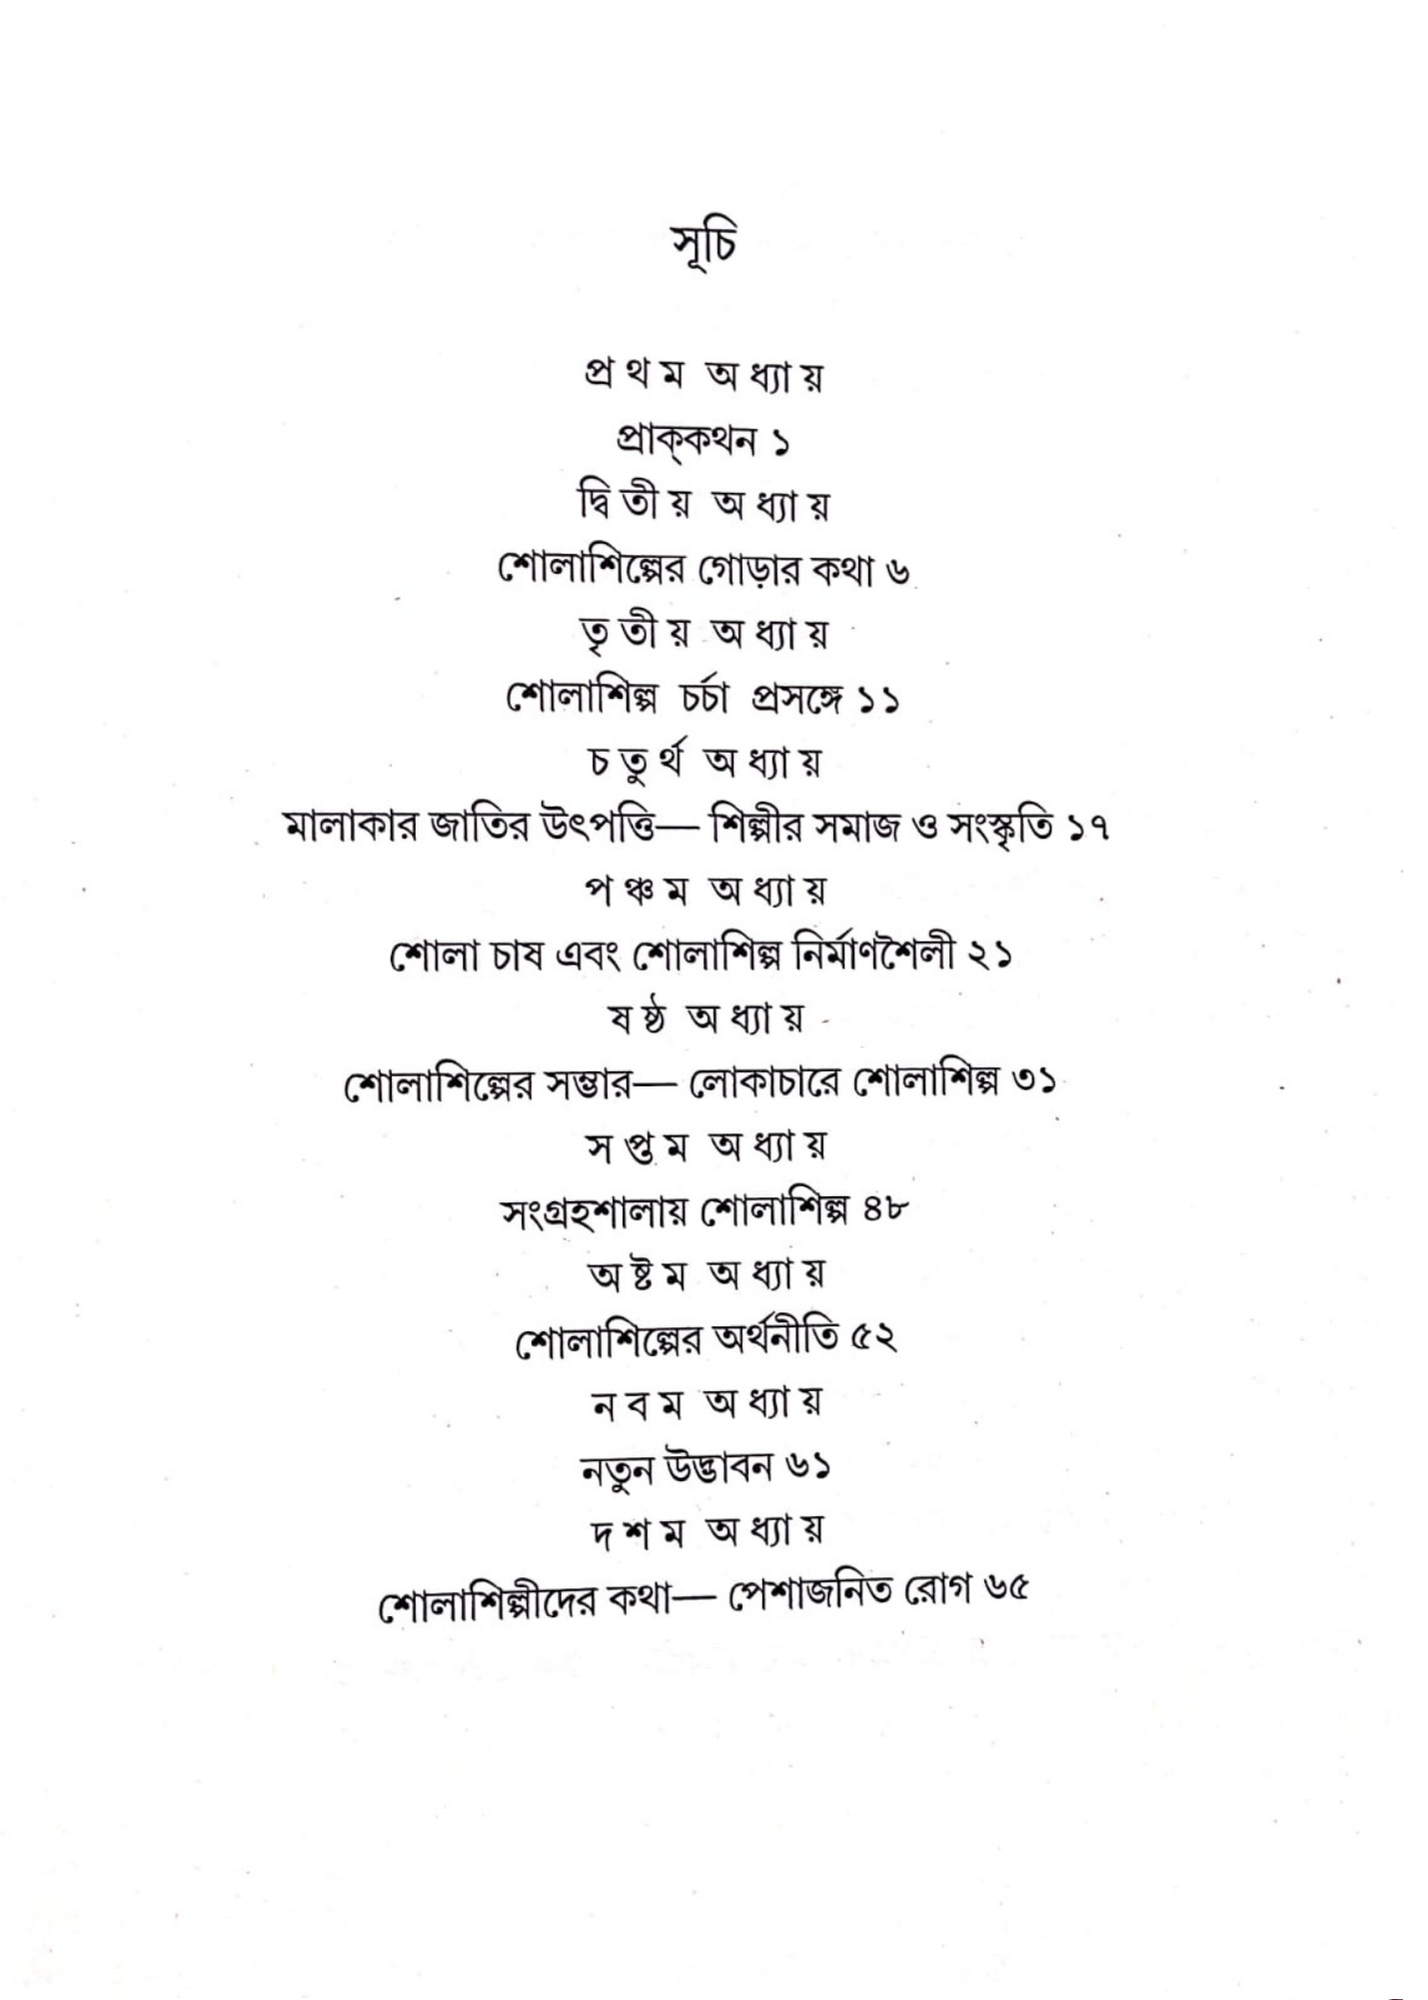 সূচি
প্র থ ম অ ধ্যা য়
প্রাক্‌কথন ১
দ্বি তী য় অ ধ্যা য়
শোলাশিল্পের গোড়ার কথা ৬
তৃ তী য় অ ধ্যা য়
শোলাশিল্প চর্চা প্রসঙ্গে ১১
চ তু র্থ অ ধ্যা য়
মালাকার জাতির উৎপত্তি— শিল্পীর সমাজ ও সংস্কৃতি ১৭
প ঞ্চ ম অ ধ্যা য়
শোলা চাষ এবং শোলাশিল্প নির্মাণশৈলী ২১
ষ ষ্ঠ অ ধ্যা য়
শোলাশিল্পের সম্ভার— লোকাচারে শোলাশিল্প ৩১
স প্ত ম অ ধ্যা য়
সংগ্রহশালায় শোলাশিল্প ৪৮
অ ষ্ট ম অ ধ্যা য়
শোলাশিল্পের অর্থনীতি ৫২
ন ব ম অ ধ্যা য়
নতুন উদ্ভাবন ৬১
দ শ ম অ ধ্যা য়
শোলাশিল্পীদের কথা— পেশাজনিত রোগ ৬৫